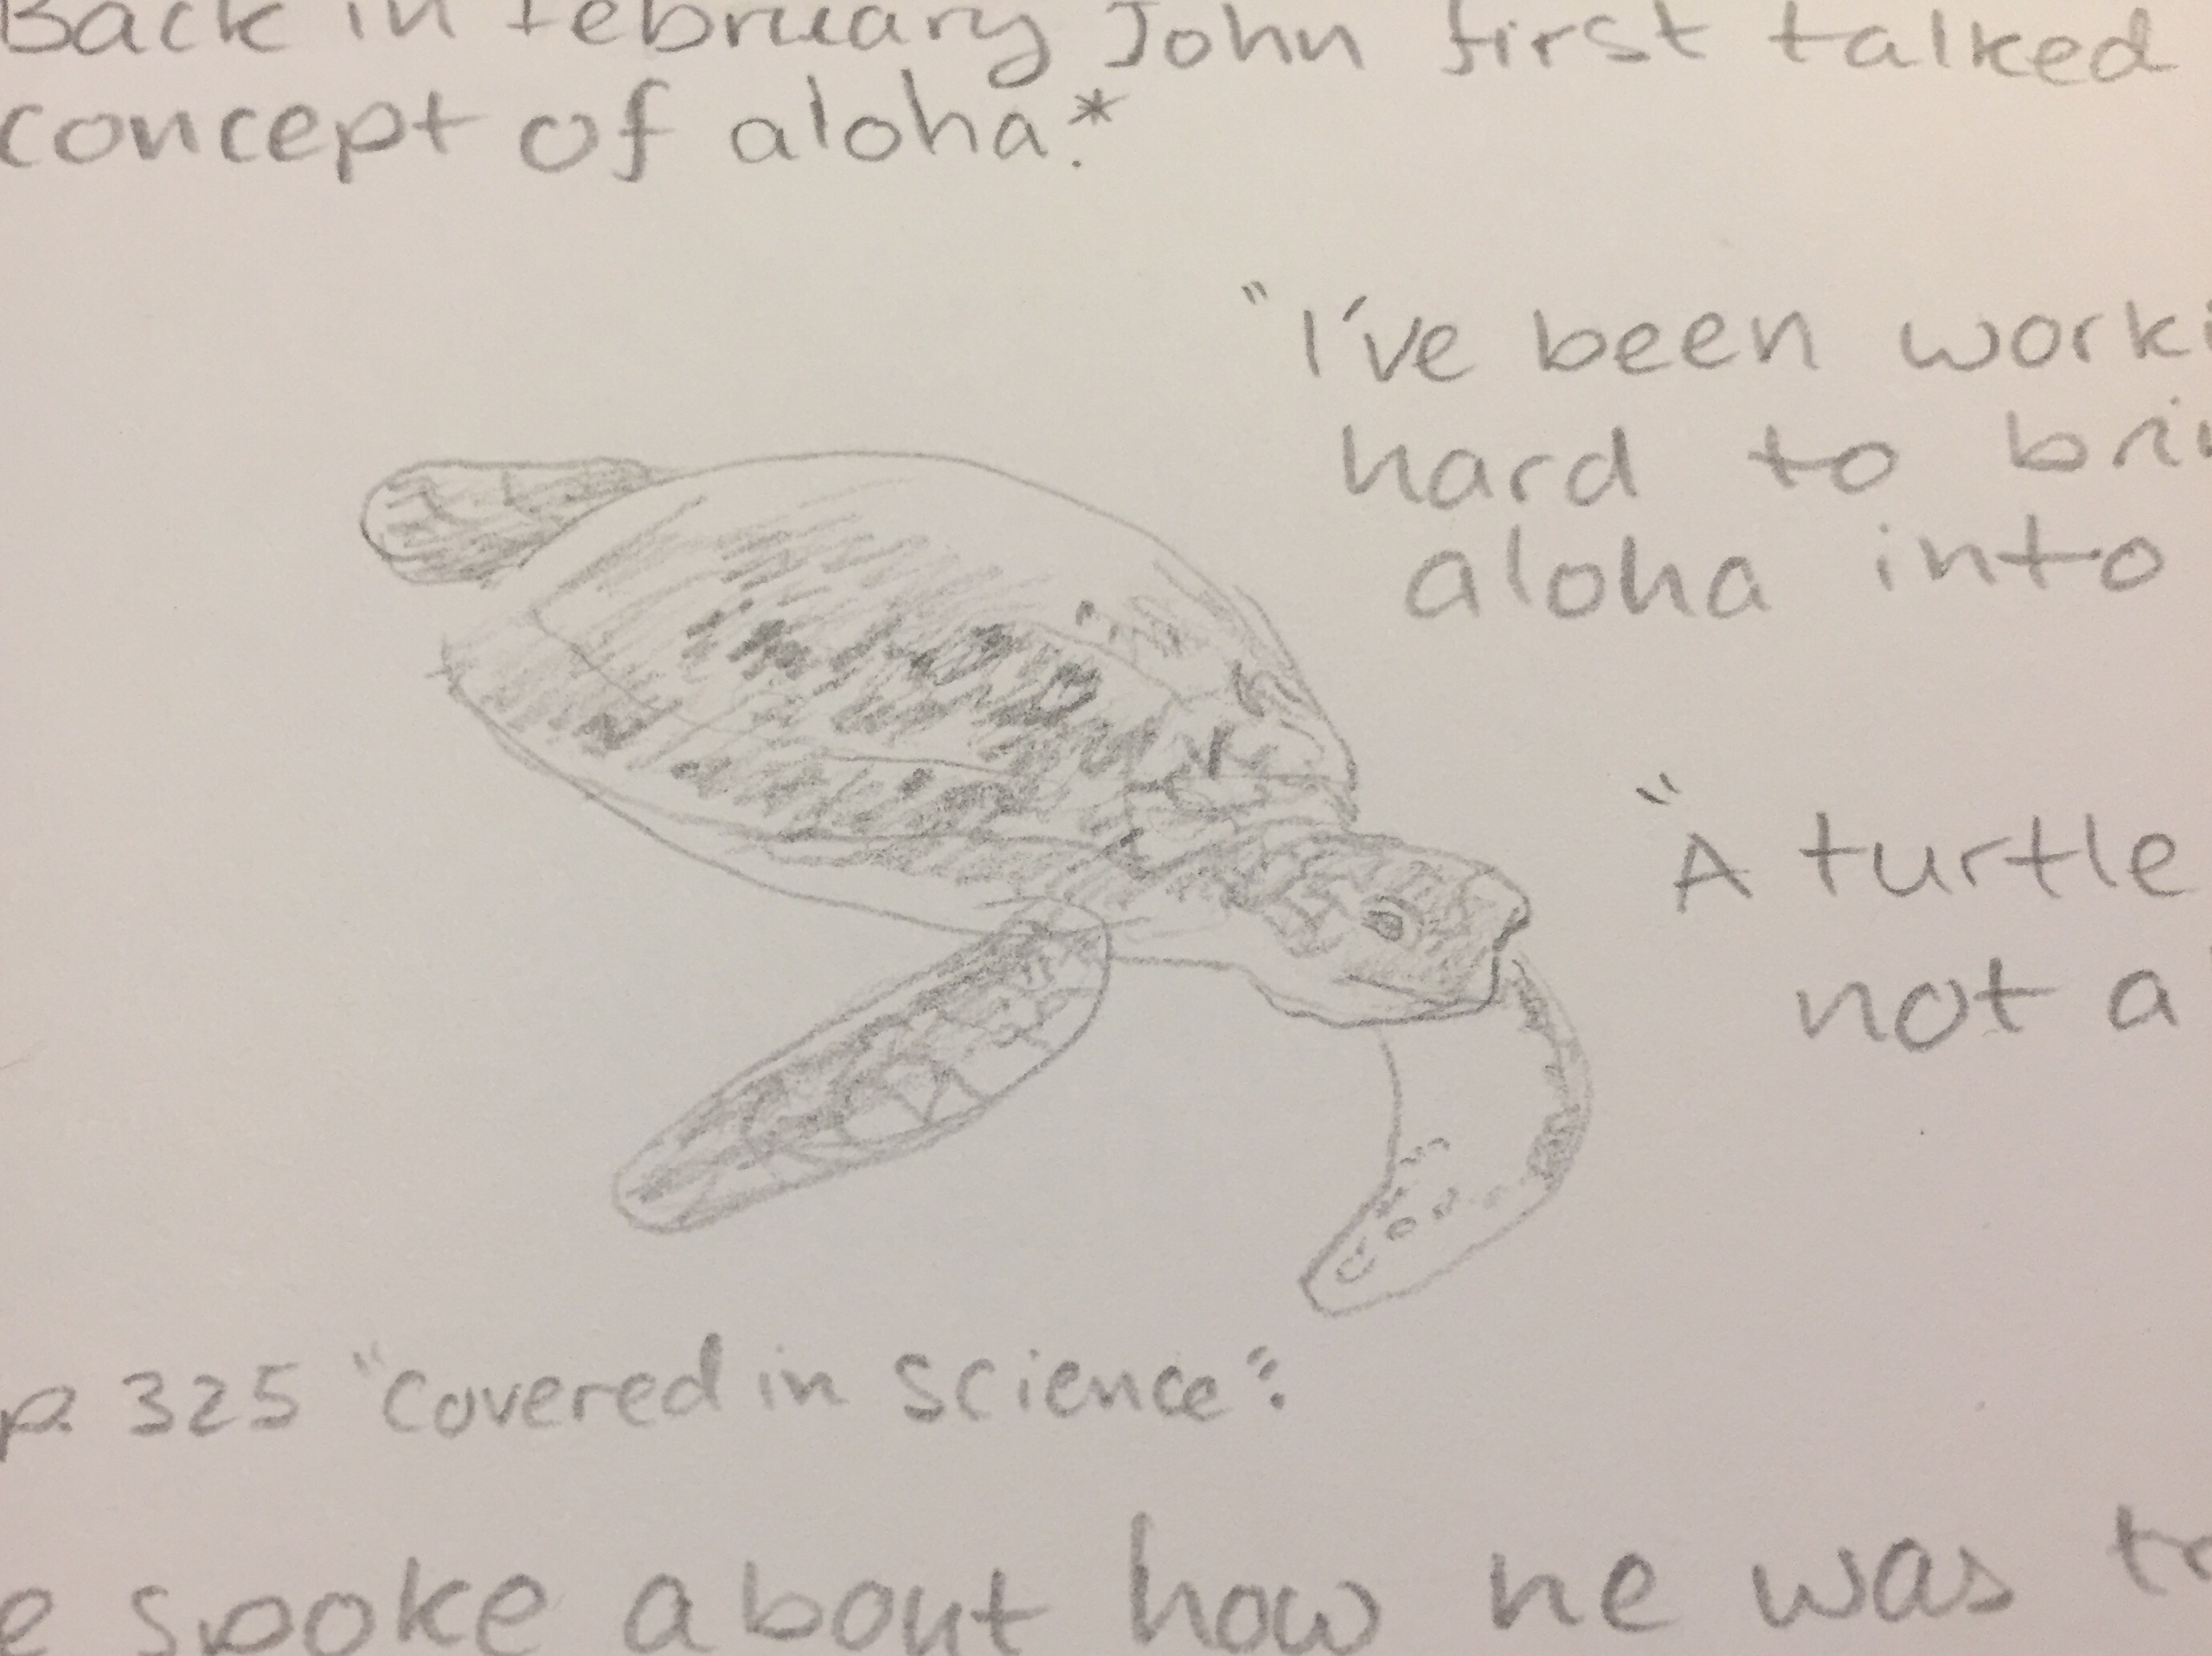 Back in February John first talked
concept of aloha.*
"I've been worki
hard to brin
aloha into
"A turtle
not a
p. 325 "Covered in science":
e spoke about how he was to